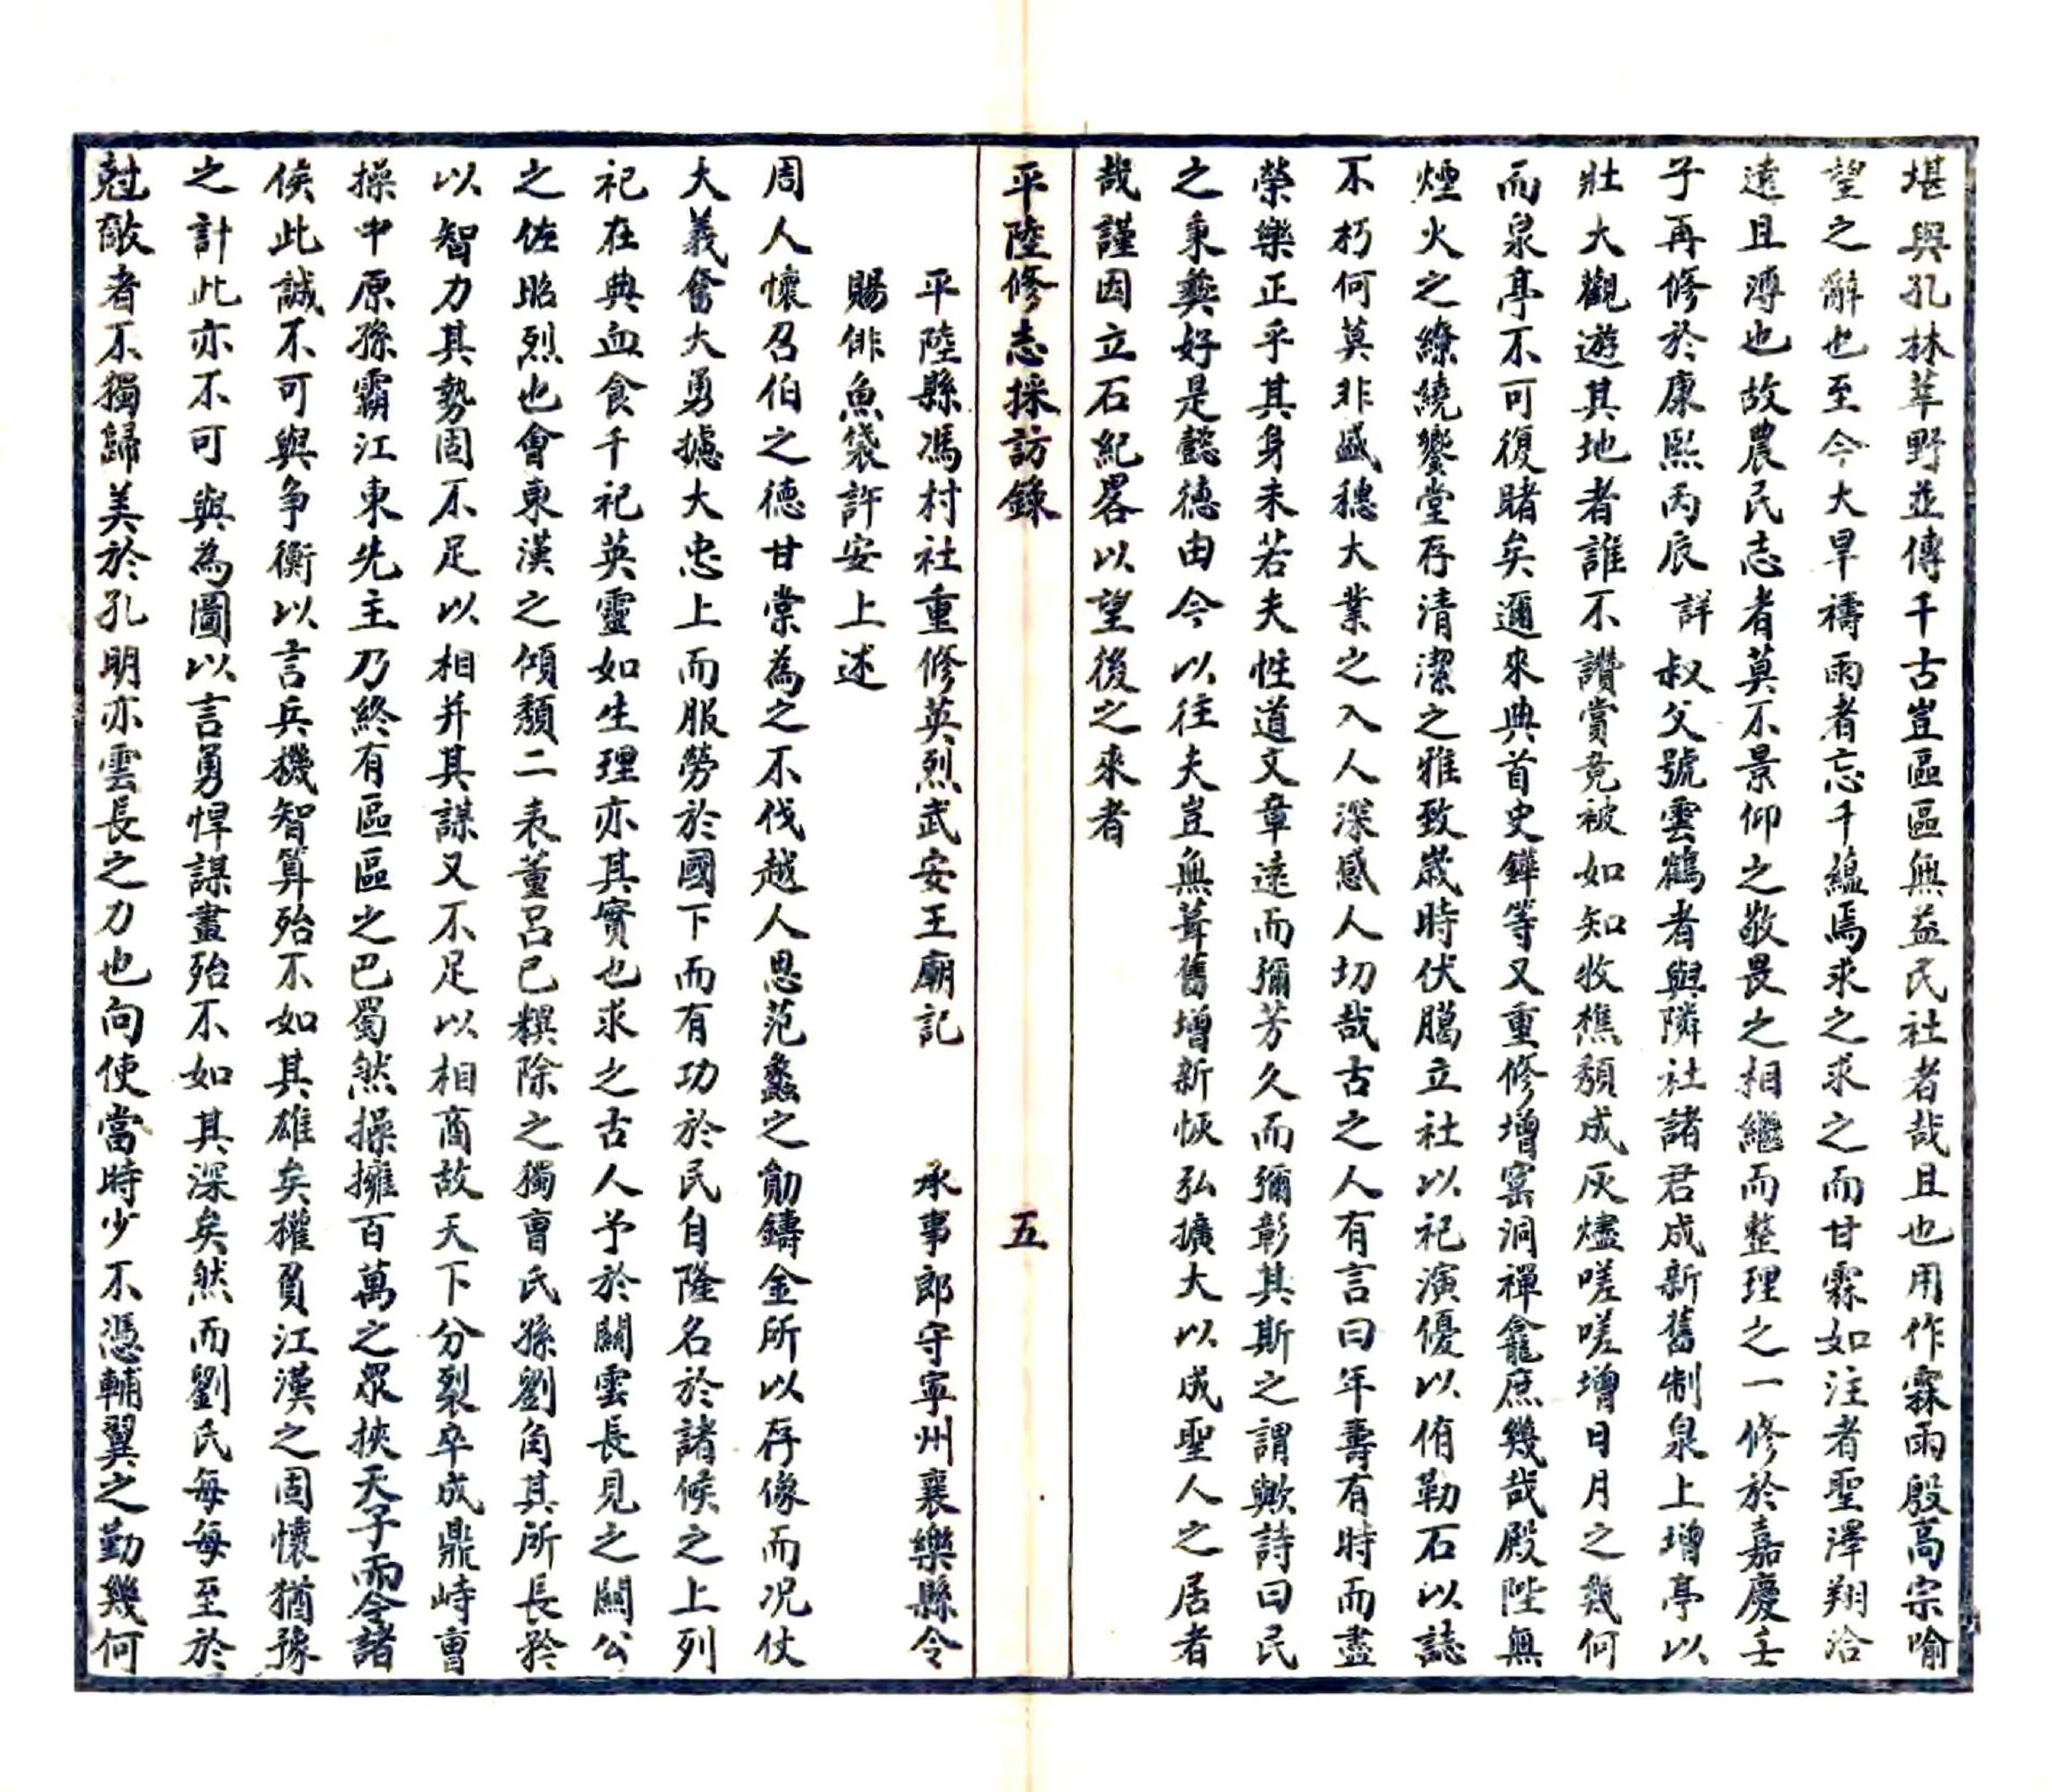 堪與孔林莘野並傳千古豈區區無益民社者哉且也用作霖雨殷高宗喻
望之辭也至今大旱禱雨者忘千蘊焉求之求之而甘霖如注者聖澤翔洽
遠且溥也故農民志者莫不景仰之敬畏之相繼而整理之一修於嘉慶壬
子再修於康熙丙辰詳叔父號雲鶴者與隣社諸君成新舊制泉上增亭以
壯大觀遊其地者誰不讚賞竟被如知牧樵頹成灰燼嗟嗟增日月之幾何
而泉亭不可復睹矣邇來典首史鏵等又重修增窰洞禪龕庶幾哉殿陛無
煙火之繚繞饗堂存清潔之雅致歲時伏臈立社以祀演優以侑勒石以誌
不朽何莫非盛穗大業之入人深感人切哉古之人有言曰年壽有時而盡
榮樂正乎其身未若夫性道文章遠而彌芳久而彌彰其斯之謂歟詩曰民
之秉彝好是懿德由今以往夫豈無葺舊增新恢弘擴大以成聖人之居者
哉謹因立石紀畧以望後之來者
平陸修志採訪錄 五
平陸縣馮村社重修英烈武安王廟記 承事郎守寜州襄樂縣令
賜俳魚袋許安上述
周人懷召伯之德甘棠為之不伐越人思范蠡之勛鑄金所以存像而况仗
大義奮大勇攄大忠上而服勞於國下而有功於民自隆名於諸候之上列
祀在典血食千祀英靈如生理亦其實也求之古人予於關雲長見之關公
之佐昭烈也會東漢之傾頹二袁董呂已糞除之獨曺氏孫劉角其所長矜
以智力其勢固不足以相并其謀又不足以相商故天下分裂卒成鼎峙曺
操中原孫霸江東先主乃終有區區之巴蜀然操擁百萬之眾挾天子而令諸
侯此誠不可與争衡以言兵機智算殆不如其雄矣權負江漢之固懷猶豫
之計此亦不可與為圖以言勇悍謀畫殆不如其深矣然而劉氏每每至於
尅敵者不獨歸美於孔明亦雲長之力也向使當時少不憑輔翼之勤幾何